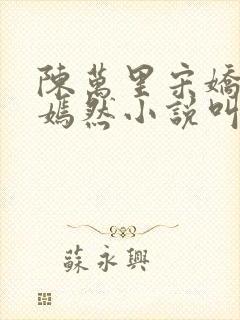 陳萬里宋嬌
嫣然小說叫
蘇永興